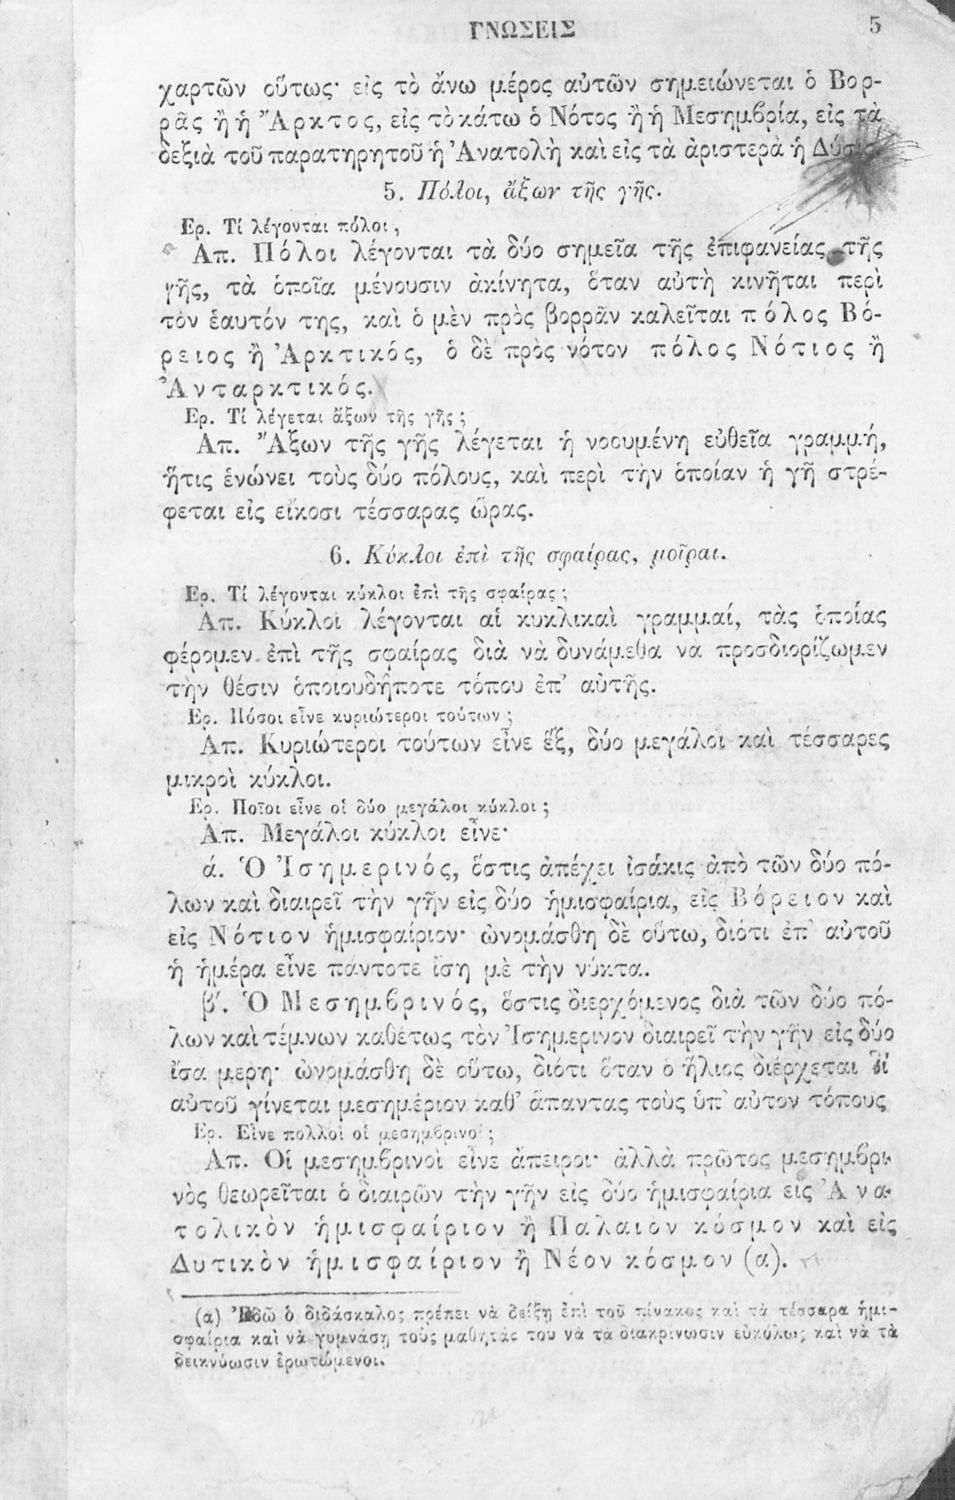 ΓΝΩΣΕΙΣ 5
χαρτῶν οὕτως· εἰς τὸ ἄνω μέρος αὐτῶν σημειώνεται ὁ Βορ-
ρᾶς ἢ ἡ Ἄρκτος, εἰς τὸ κάτω ὁ Νότος ἢ ἡ Μεσημβρία, εἰς τὰ
δεξιὰ τοῦ παρατηρητοῦ ἡ Ἀνατολὴ καὶ εἰς τὰ ἀριστερὰ ἡ Δύσις.
5. Πόλοι, ἄξων τῆς γῆς.
Ερ. Τί λέγονται πόλοι;
Απ. Πόλοι λέγονται τὰ δύο σημεῖα τῆς ἐπιφανείας τῆς
γῆς, τὰ ὁποῖα μένουσιν ἀκίνητα, ὅταν αὐτὴ κινῆται περὶ
τὸν ἑαυτόν της, καὶ ὁ μὲν πρὸς βορρᾶν καλεῖται πόλος Βό-
ρειος ἢ Ἀρκτικός, ὁ δὲ πρὸς νότον πόλος Νότιος ἢ
Ἀνταρκτικός.
Ερ. Τί λέγεται ἄξων τῆς γῆς;
Απ. Ἄξων τῆς γῆς λέγεται ἡ νοουμένη εὐθεῖα γραμμή,
ἥτις ἑνώνει τοὺς δύο πόλους, καὶ περὶ τὴν ὁποίαν ἡ γῆ στρέ-
φεται εἰς εἴκοσι τέσσαρας ὥρας.
6. Κύκλοι ἐπὶ τῆς σφαίρας, μοῖραι.
Ερ. Τί λέγονται κύκλοι ἐπὶ τῆς σφαίρας;
Απ. Κύκλοι λέγονται αἱ κυκλικαὶ γραμμαί, τὰς ὁποίας
φέρομεν ἐπὶ τῆς σφαίρας διὰ νὰ δυνάμεθα να προσδιορίζωμεν
τὴν θέσιν ὁποιουδήποτε τόπου ἐπ' αὐτῆς.
Ερ. Πόσοι εἶνε κυριώτεροι τούτων;
Απ. Κυριώτεροι τούτων εἶνε ἕξ, δύο μεγάλοι καὶ τέσσαρες
μικροὶ κύκλοι.
Ερ. Ποῖοι εἶνε οἱ δύο μεγάλοι κύκλοι;
Απ. Μεγάλοι κύκλοι εἶνε·
ά. Ὁ Ἰσημερινός, ὅστις ἀπέχει ἰσάκις ἀπὸ τῶν δύο πό-
λων καὶ διαιρεῖ τὴν γῆν εἰς δύο ἡμισφαίρια, εἰς Βόρειον καὶ
εἰς Νότιον ἡμισφαίριον· ὠνομάσθη δὲ οὕτω, διότι ἐπ' αὐτοῦ
ἡ ἡμέρα εἶνε πάντοτε ἴση μὲ τὴν νύκτα.
β'. Ὁ Μεσημβρινός, ὅστις διερχόμενος διὰ τῶν δύο πό-
λων καὶ τέμνων καθέτως τὸν Ἰσημερινον διαιρεῖ τὴν γῆν εἰς δύο
ἴσα μερη· ὠνομάσθη δὲ οὕτω, διότι ὅταν ὁ ἥλιος διέρχεται δι'
αὐτοῦ γίνεται μεσημέριον καθ' ἅπαντας τοὺς ὑπ' αὐτον τόπους
Ερ. Εἶνε πολλοὶ οἱ μεσημβρινοί;
Απ. Οἱ μεσημβρινοὶ εἶνε ἄπειροι· ἀλλὰ πρῶτος μεσημβρι-
νὸς θεωρεῖται ὁ διαιρῶν τὴν γῆν εἰς δύο ἡμισφαίρια εἰς Ἀνα-
τολικὸν ἡμισφαίριον ἢ Παλαιὸν κόσμον καὶ εἰς
Δυτικὸν ἡμισφαίριον ἢ Νέον κόσμον (α).
(α) Ἐδῶ ὁ διδάσκαλος πρέπει νὰ δείξῃ ἐπὶ τοῦ πίνακος καὶ τὰ τέσσαρα ἡμι-
σφαίρια καὶ νὰ γυμνάσῃ τοὺς μαθητάς του νὰ τὰ διακρίνωσιν εὐκόλως καὶ νὰ τὰ
δεικνύωσιν ἐρωτώμενοι.